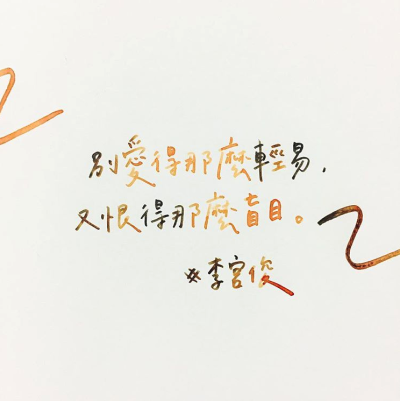 別愛得那麼輕易，
又恨得那麼盲目。
※李宮俊